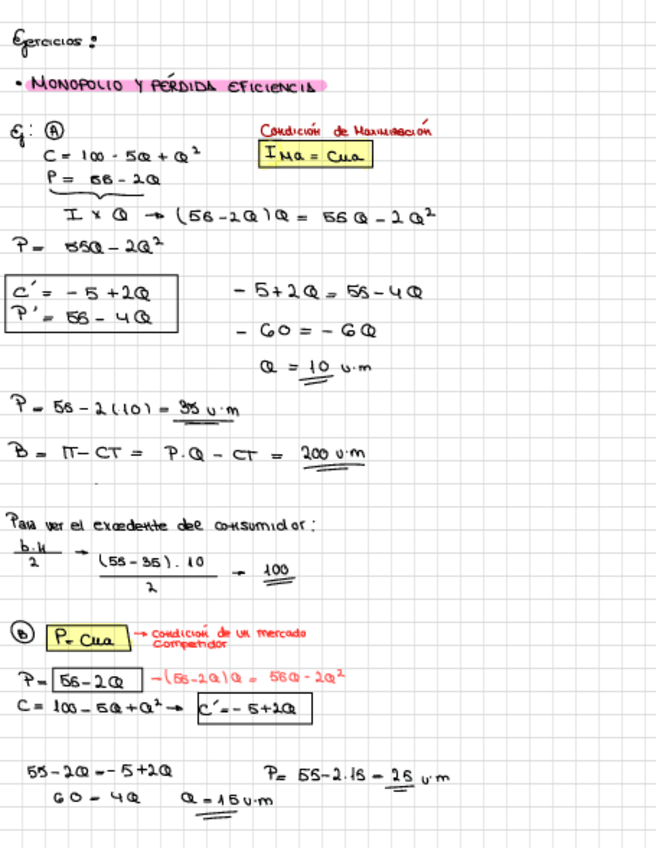 Ejercicios:
• MONOPOLIO Y PÉRDIDA EFICIENCIA
Ej: A
Condición de Maximización
C = 100 - 5Q + Q²
IMa = CMa
P = 55 - 2Q
I x Q → (55-2Q)Q = 55Q - 2Q²
P = 55Q - 2Q²
C' = -5 + 2Q
- 5+2Q = 55-4Q
P' = 55 - 4Q
- 60 = - 6Q
Q = 10 u.m
P = 55 - 2(10) = 35 u.m
B = IT - CT = P.Q - CT = 200 u.m
Para ver el excedente del consumidor:
b.h/2 → (55-35).10/2 = 100
B P = CMa → condición de un mercado
competidor
P = 55-2Q → (55-2Q)Q = 55Q - 2Q²
C = 100 - 5Q + Q² → C' = - 5+2Q
55-2Q = -5+2Q
P = 55-2.15 = 25 u.m
60 = 4Q Q = 15 u.m